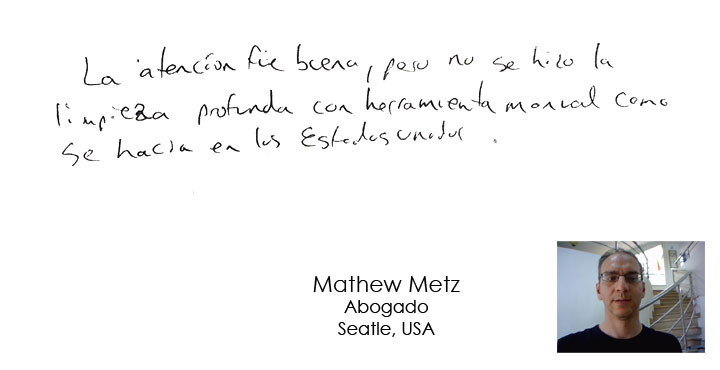 La atención fue buena, pero no se hizo la
limpieza profunda con herramienta manual como
se hacia en los Estados unidos.
Mathew Metz
Abogado
Seatle, USA